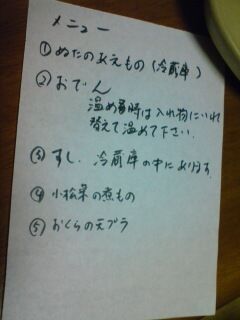 メニュー
①ぬたのあえもの(冷蔵庫)
②おでん
温める時は入れ物にいれ
替えて温めて下さい.
③すし.冷蔵庫の中にあります.
④小松菜の煮もの
⑤おくらの天プラ